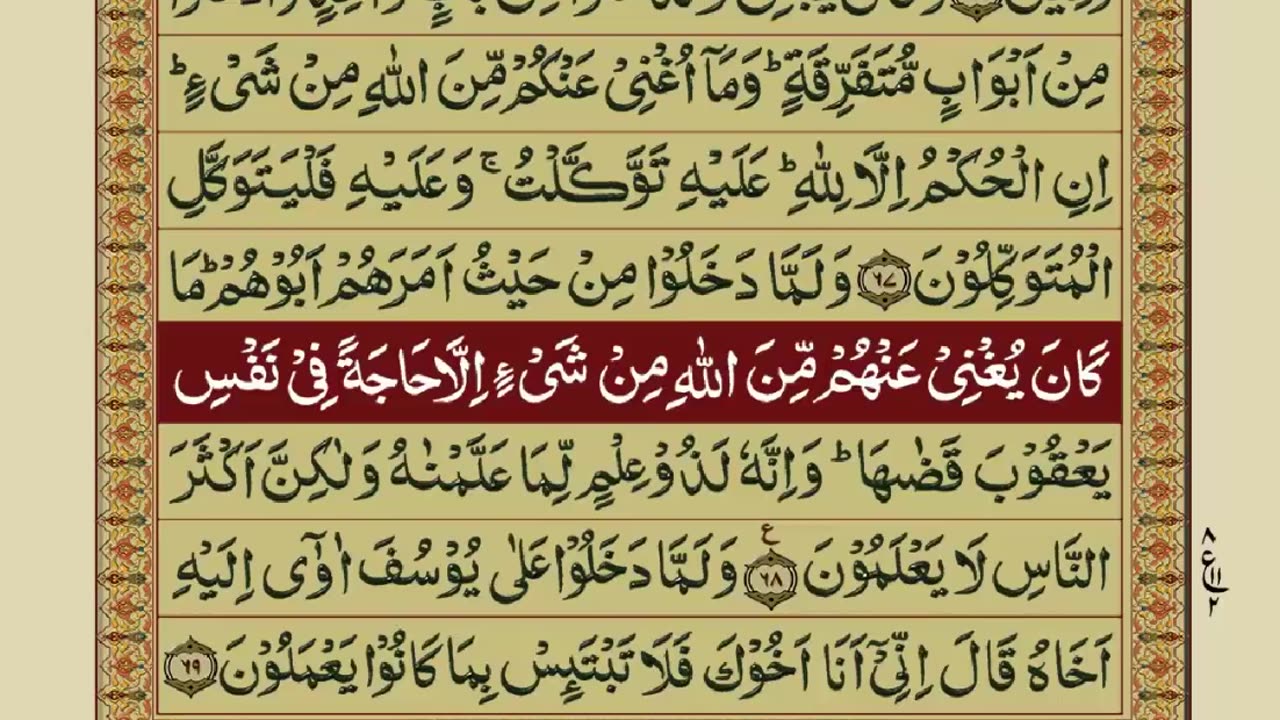 مِنْ اَبْوَابٍ مُّتَفَرِّقَةٍ ؕ وَمَاۤ اُغْنِیْ عَنْكُمْ مِّنَ اللّٰهِ مِنْ شَیْءٍ ؕ
اِنِ الْحُكْمُ اِلَّا لِلّٰهِ ؕ عَلَیْهِ تَوَّكَّلْتُ ۚ وَعَلَیْهِ فَلْیَتَوَكَّلِ
الْمُتَوَكِّلُوْنَ ﴿۶۷﴾ وَلَمَّا دَخَلُوْا مِنْ حَیْثُ اَمَرَهُمْ اَبُوْهُمْ ؕ مَا
كَانَ یُغْنِیْ عَنْهُمْ مِّنَ اللّٰهِ مِنْ شَیْءٍ اِلَّا حَاجَةً فِیْ نَفْسِ
یَعْقُوْبَ قَضٰىهَا ؕ وَاِنَّهٗ لَذُوْ عِلْمٍ لِّمَا عَلَّمْنٰهُ وَلٰكِنَّ اَكْثَرَ
النَّاسِ لَا یَعْلَمُوْنَ ﴿۶۸﴾ ع وَلَمَّا دَخَلُوْا عَلٰی یُوْسُفَ اٰوٰۤی اِلَیْهِ
اَخَاهُ قَالَ اِنِّیْۤ اَنَا اَخُوْكَ فَلَا تَبْتَىِٕسْ بِمَا كَانُوْا یَعْمَلُوْنَ ﴿۶۹﴾
۸
ع ۱۱
۲